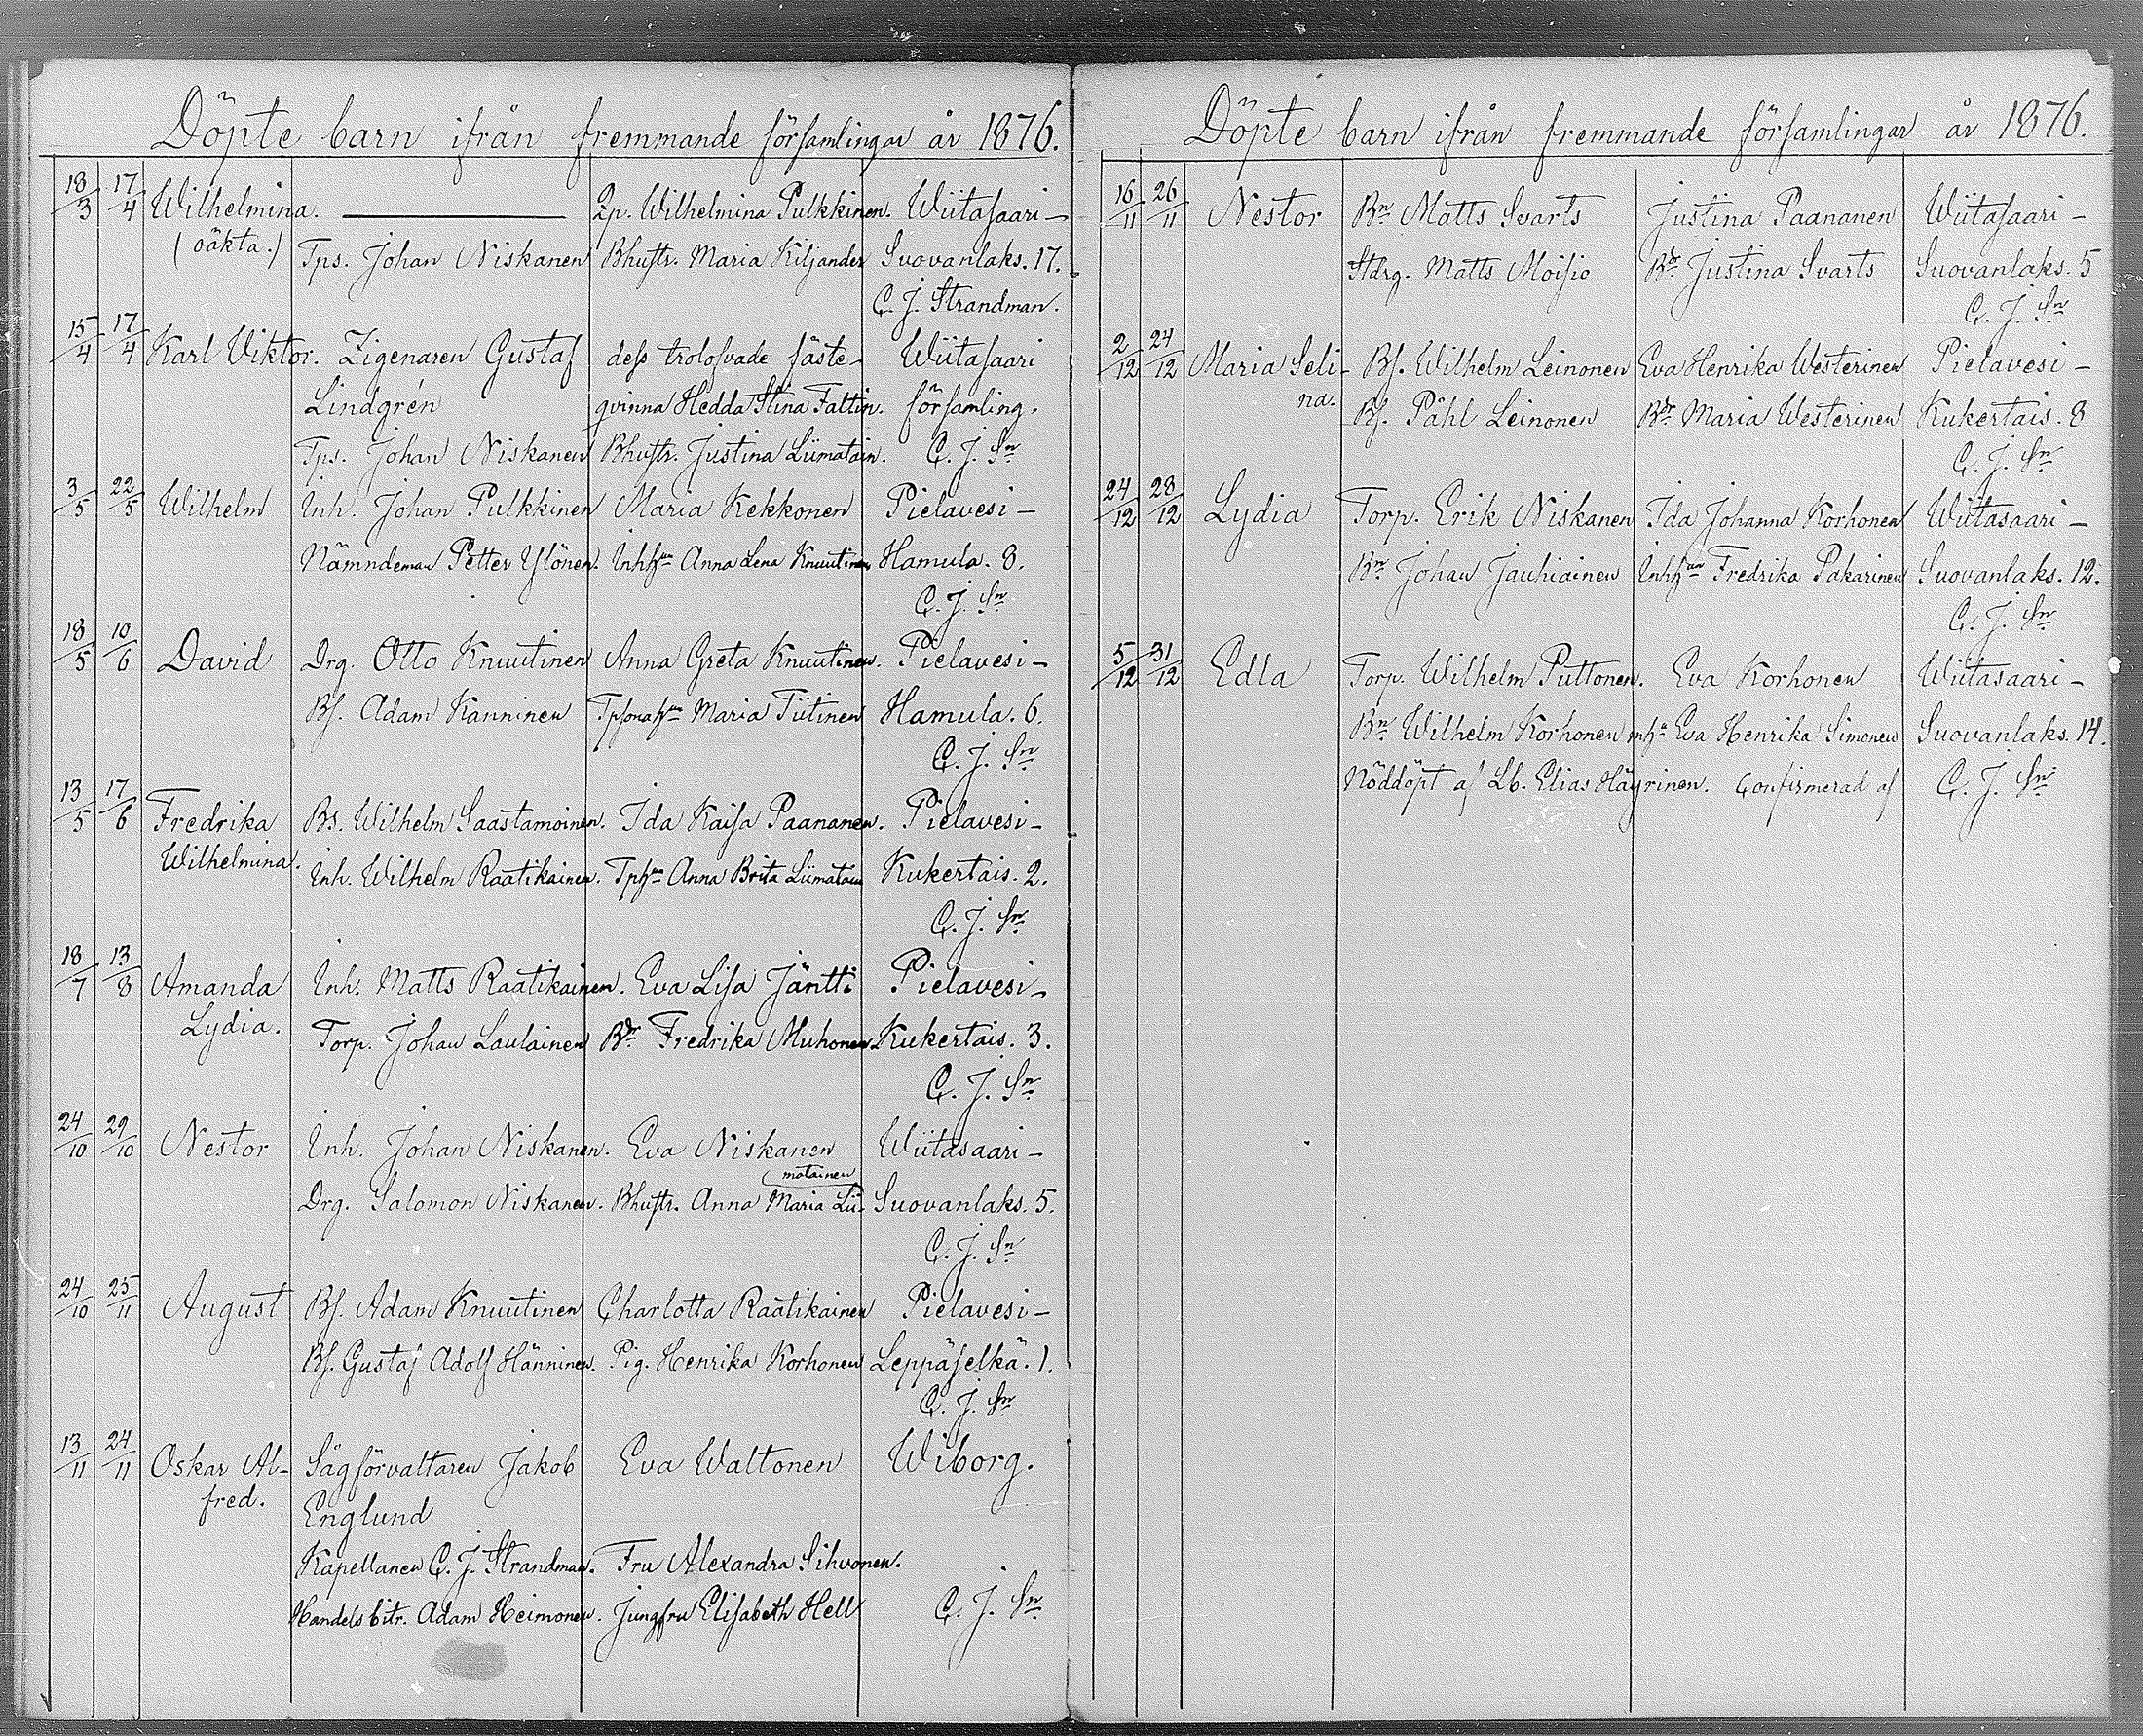 Döpte barn ifrån fremmande församlingar år 1876.
18/3 17/4 Wilhelmina. Qp. Wilhelmina Pulkkinen. Wiitasaari –
(oäkta.) Tps. Johan Niskanen Bhustr. Maria Kiljander Suovanlaks. 17.
C. J. Strandman.
15/4 17/4 Karl Viktor. Zigenaren Gustaf dess trolofvade fäste- Wiitasaari
Lindgrén qvinna Hedda Stina Faltin. församling.
Tps. Johan Niskanen Bhustr. Justina Liimatain. C. J. Sn
3/5 22/5 Wilhelm Inh. Johan Pulkkinen Maria Kekkonen Pielavesi –
Nämndeman Petter Ylönen. Inhhun Anna Lena Knuutinen Hamula. 8.
C. J. Sn
18/5 10/6 David Drg. Otto Knuutinen Anna Greta Knuutinen. Pielavesi –
Bs. Adam Kanninen Maria Tiitinen Hamula. 6.
C. J. Sn
13/5 17/6 Fredrika Bs. Wilhelm Saastamoinen. Ida Kaisa Paananen. Pielavesi –
Wilhelmina. Inh. Wilhelm Raatikainen. Tphun Anna Brita Liimatain Kukertais. 2.
C. J. Sn
18/7 13/8 Amanda Inh. Matts Raatikainen. Eva Lisa Jäntti Pielavesi –
Lydia. Torp. Johan Laulainen Bdr Fredrika Muhonen Kukertais. 3.
C. J. Sn
24/10 29/10 Nestor Inh. Johan Niskanen. Eva Niskanen Wiitasaari –
matainen
Drg. Salomon Niskanen. Bhustr. Anna Maria Lii- Suovanlaks. 5.
C. J. Sn
24/10 25/11 August Bs. Adam Knuutinen Charlotta Raatikainen Pielavesi –
Bs. Gustaf Adolf Hänninen. Pig. Henrika Korhonen Leppäselkä. 1.
C. J. Sn
13/11 24/11 Oskar Al- Sågförvaltaren Jakob Eva Waltonen Wiborg.
fred. Englund
Kapellanen C. J. Strandman. Fru Alexandra Sihvonen.
Handelsbitr. Adam Heimonen. Jungfru Elisabeth Hell C. J. Sn
Döpte barn ifrån fremmande församlingar år 1876.
16/11 26/11 Nestor Bn Matts Svarts Justina Paananen Wiitasaari –
Stdrg. Matts Moisio Bdr Justina Svarts Suovanlaks. 5
C. J. Sn
2/12 24/12 Maria Seli- Bs. Wilhelm Leinonen Eva Henrika Westerinen Pielavesi –
na. Bs. Påhl Leinonen Bdr Maria Westerinen Kukertais. 8
C. J. Sn
24/12 28/12 Lydia Torp. Erik Niskanen Ida Johanna Korhonen Wiitasaari –
Bn Johan Jauhiainen Inhhun Fredrika Pakarinen Suovanlaks. 12.
C. J. Sn
5/12 31/12 Edla Torp. Wilhelm Puttonen. Eva Korhonen Wiitasaari –
Bn Wilhelm Korhonen inha Eva Henrika Simonen Suovanlaks. 14.
Nöddöpt af Lb. Elias Häyrinen. Confirmerad af C. J. Sn